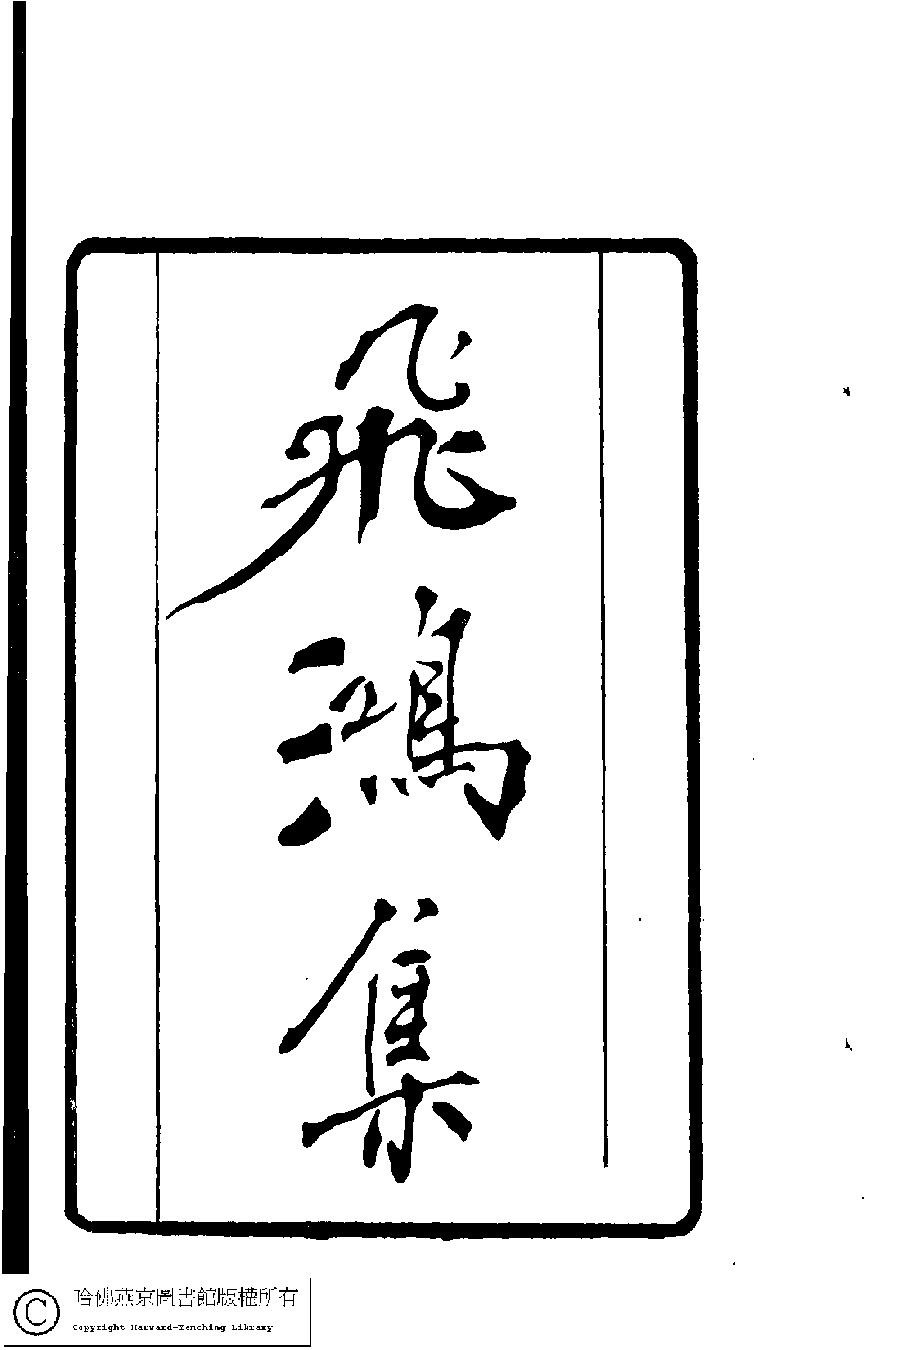 飛鴻集
© 哈佛燕京圖書館版權所有
Copyright Harvard-Yenching Library